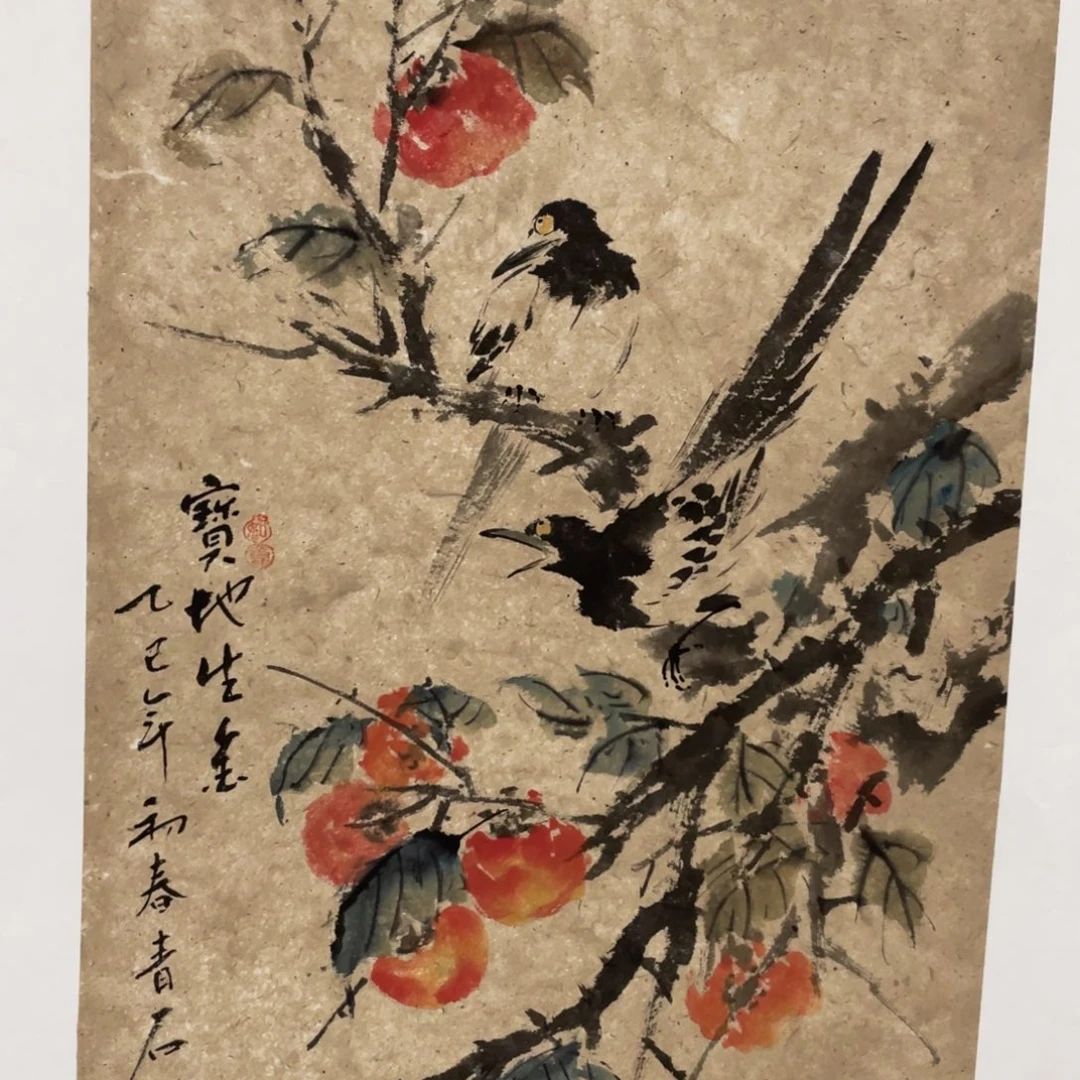 寶地生金
乙巳年初春青石